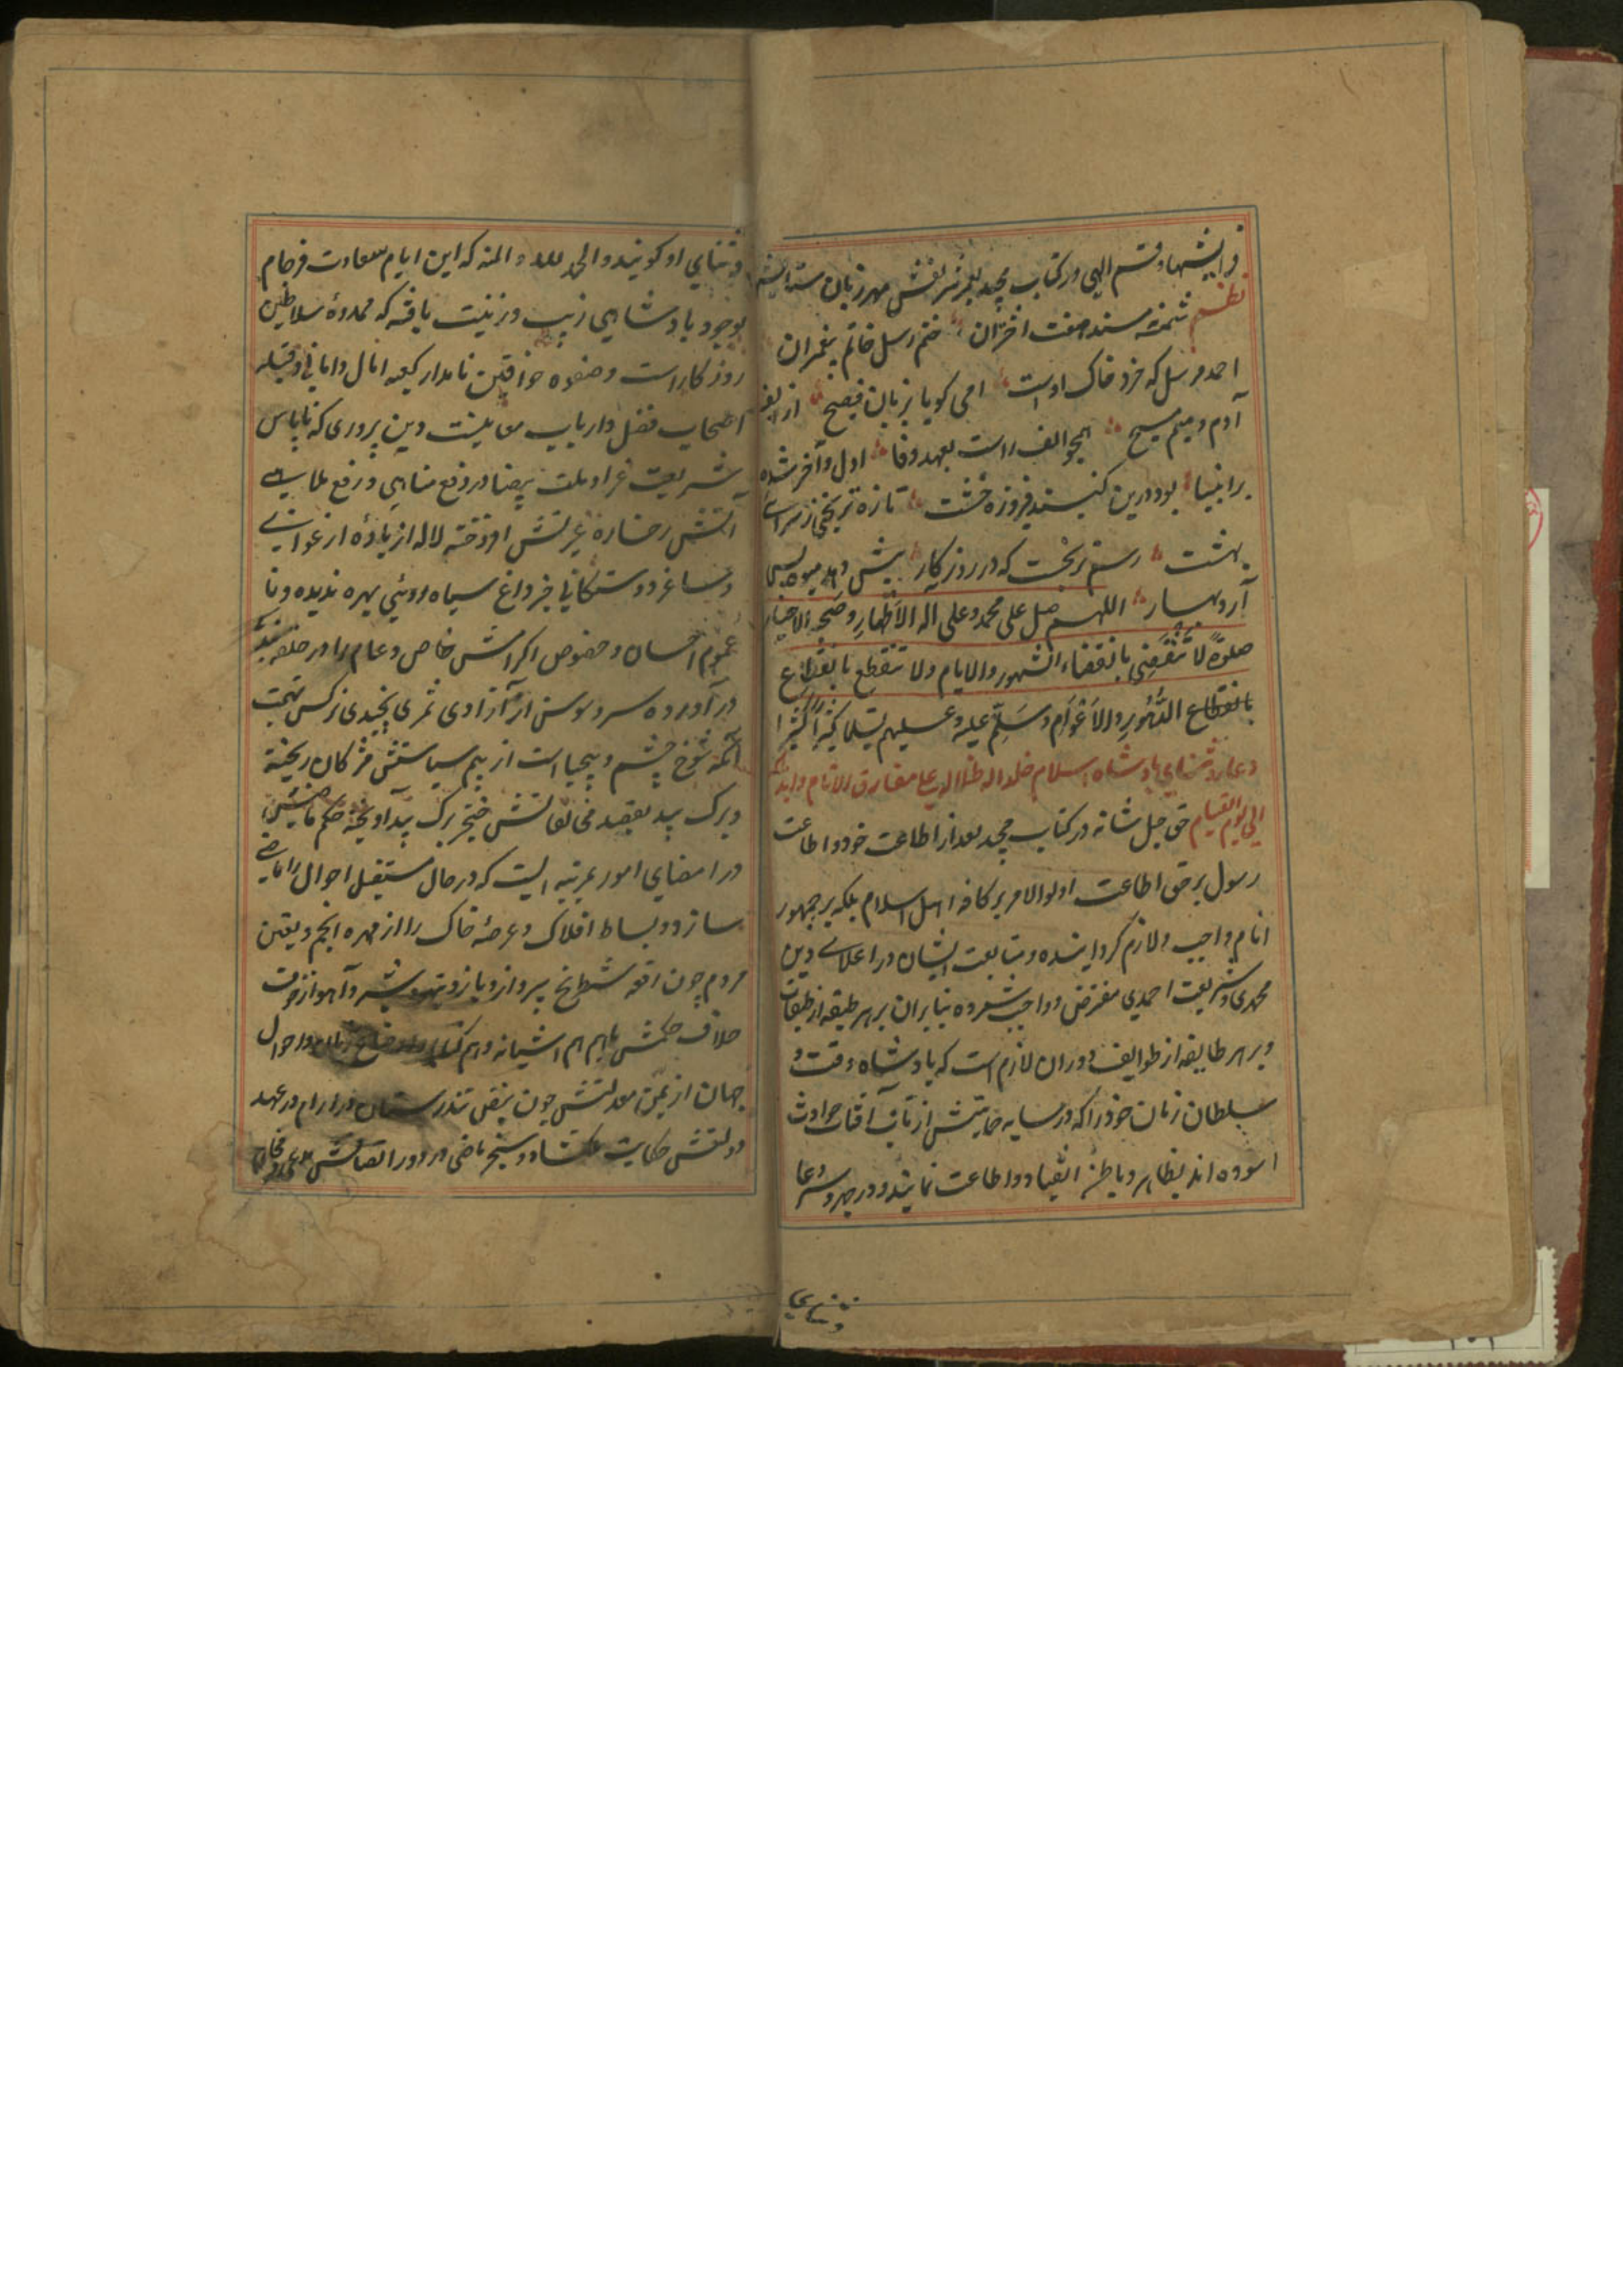 آفرینشها و قسم الهی در کتاب مجید بعمر شریفش مهر زبان ستایش
نظم تخته مسند هفت اختران ختم رسل خاتم پیغمبران
احمد مرسل که خرد خاک اوست امی کویا بزبان فصیح از الف
آدم و میم مسیح همچو الف راست بعهد و وفا اول و آخر شده
بر انبیا بود درین کنبد فیروزه خشت تازه ترنجی ز سرای
بهشت رسم ترنجست که در روزکار پیش دهد میوه پس
آرد بهار اللهم صل علی محمد وعلی آله الاطهار وصحبه الاخیار
صلوة لا تنقضی بانقضاء الشهور والایام ولا تنقطع بانقطاع
بانقطاع الدهور والاعوام وسلم علیه وعلیهم تسلیما کثیرا کثیرا
دعا و ثنای پادشاه اسلام خلد الله ظلاله علی مفارق الانام
الی یوم القیام حق جل شانه در کتاب مجید بعد از اطاعت خود و اطاعت
رسول بر حق اطاعت اولوالامر بر کافه اهل اسلام بلکه بر جمهور
انام واجب و لازم کردانیده و متابعت ایشان در اعلای دین
محمدی و شریعت احمدی مفترض و واجب شمرده بنابران بر هر طبقه از طبقات
و بر هر طایفه از طوایف دوران لازم است که پادشاه وقت و
سلطان زمان خود را که در سایه حمایتش از تاب آفتاب حوادث
آسوده اند بظاهر و باطن انقیاد و اطاعت نمایند و در جهر و سر دعا
و ثنای
و ثنای او کویند و الحمد لله و المنه که این ایام سعادت فرجام
بوجود پادشاهی زیب و زینت یافته که ممدوه سلاطین
روزکار است و صفوه خواقین نامدار کعبه آمال و امانی و قبله
اصحاب فضل و ارباب دین پروری که تا پاس
شریعت غرا و ملت بیضا در دفع مناهی و رفع ملاهی
آتش رخساره غیرتش افروخته لاله از باده ارغوانی
و ساغر دوستکانی جز داغ سیاه روئی بهره ندیده و تا
عموم احسان و خصوص اکرامش خاص و عام را در حلقه
در آورده سرو و سوسن از آزادی ثمری نچیدی نرکس بتهمت
آنکه شوخ چشم و بیحیاست از بیم سیاستش مژکان ریخته
و برک بید بقصد مخالفانش خنجر برک بید آویخته حکم
در امضای امور بمرتبه ایست که در حال مستقبل احوال را ماضی
سازد و بساط افلاک و عرصه خاک را از مهره انجم و
مردم چون رقعه شطرنج بپردازد باز و تیهو و شیر و آهو از خوف
خلاف حکمش باهم هم آشیانه و هم و احوال
جهان از یمن معدلتش چون نبض تندرستان در آرام در عهد
دولتش حکایت ملکشاه و سنجر ماضی و در دور انصافش